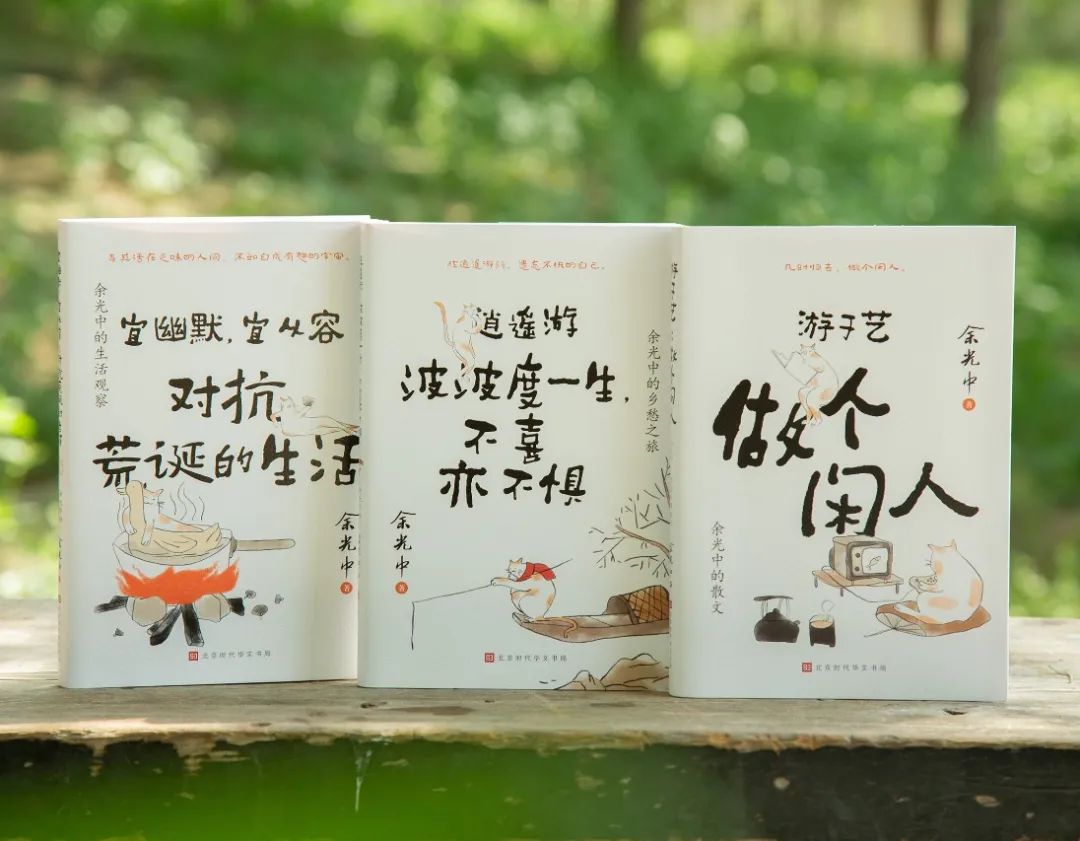 与其活在乏味的人间，不如自成有趣的宇宙。
余光中的生活观察
宜幽默，宜从容
对抗
荒诞的生活
余光中 著
北京时代华文书局
逍遥游
波波度一生，
不喜
亦不惧
余光中的乡愁之旅
余光中 著
北京时代华文书局
几时归去，做个闲人。
游于艺
做个
闲人
余光中 著
余光中的散文
北京时代华文书局
游于艺